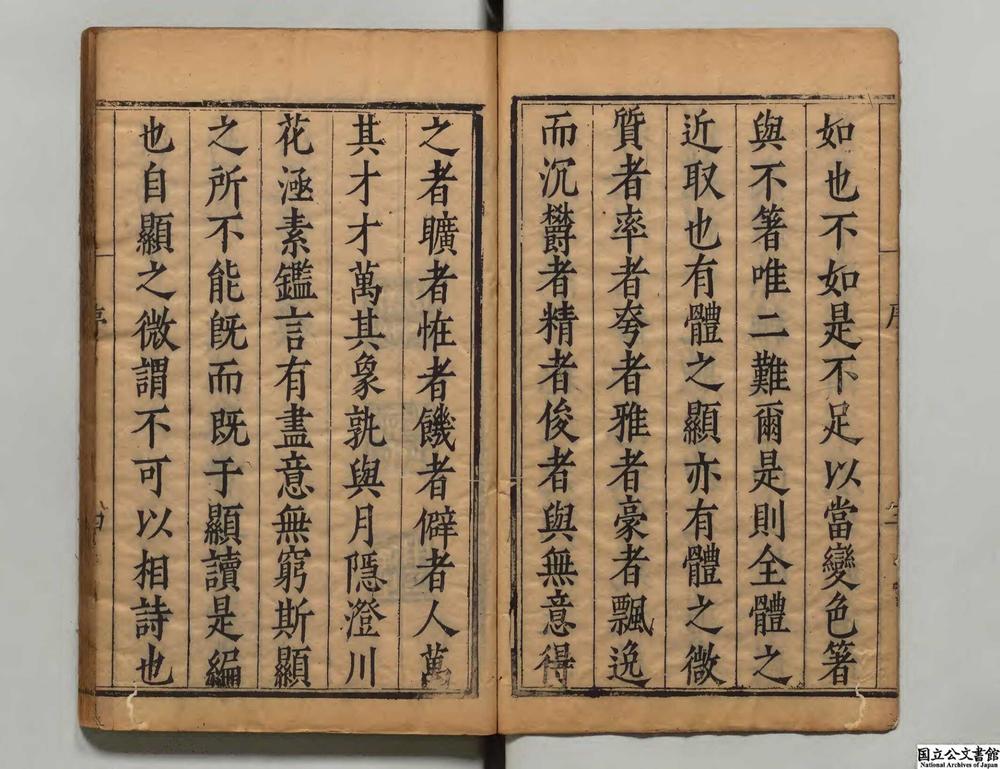 如也不如是不足以當變色箸
與不箸唯二難爾是則全體之
近取也有體之顯亦有體之微
質者率者夸者雅者豪者飄逸
而沉鬱者精者俊者與無意得
之者曠者恠者饑者僻者人萬
其才才萬其象孰與月隱澄川
花涵素鑑言有盡意無窮斯顯
之所不能旣而旣于顯讀是編
也自顯之微謂不可以相詩也
国立公文書館
National Archives of Japan